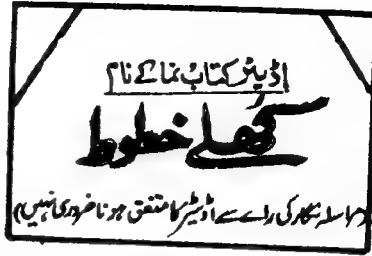 اڈیٹر کتاب نما کے نام
کھلے خطوط
(مراسلہ نگار کی راے سے اڈیٹر کا متفق ہونا ضروری نہیں)